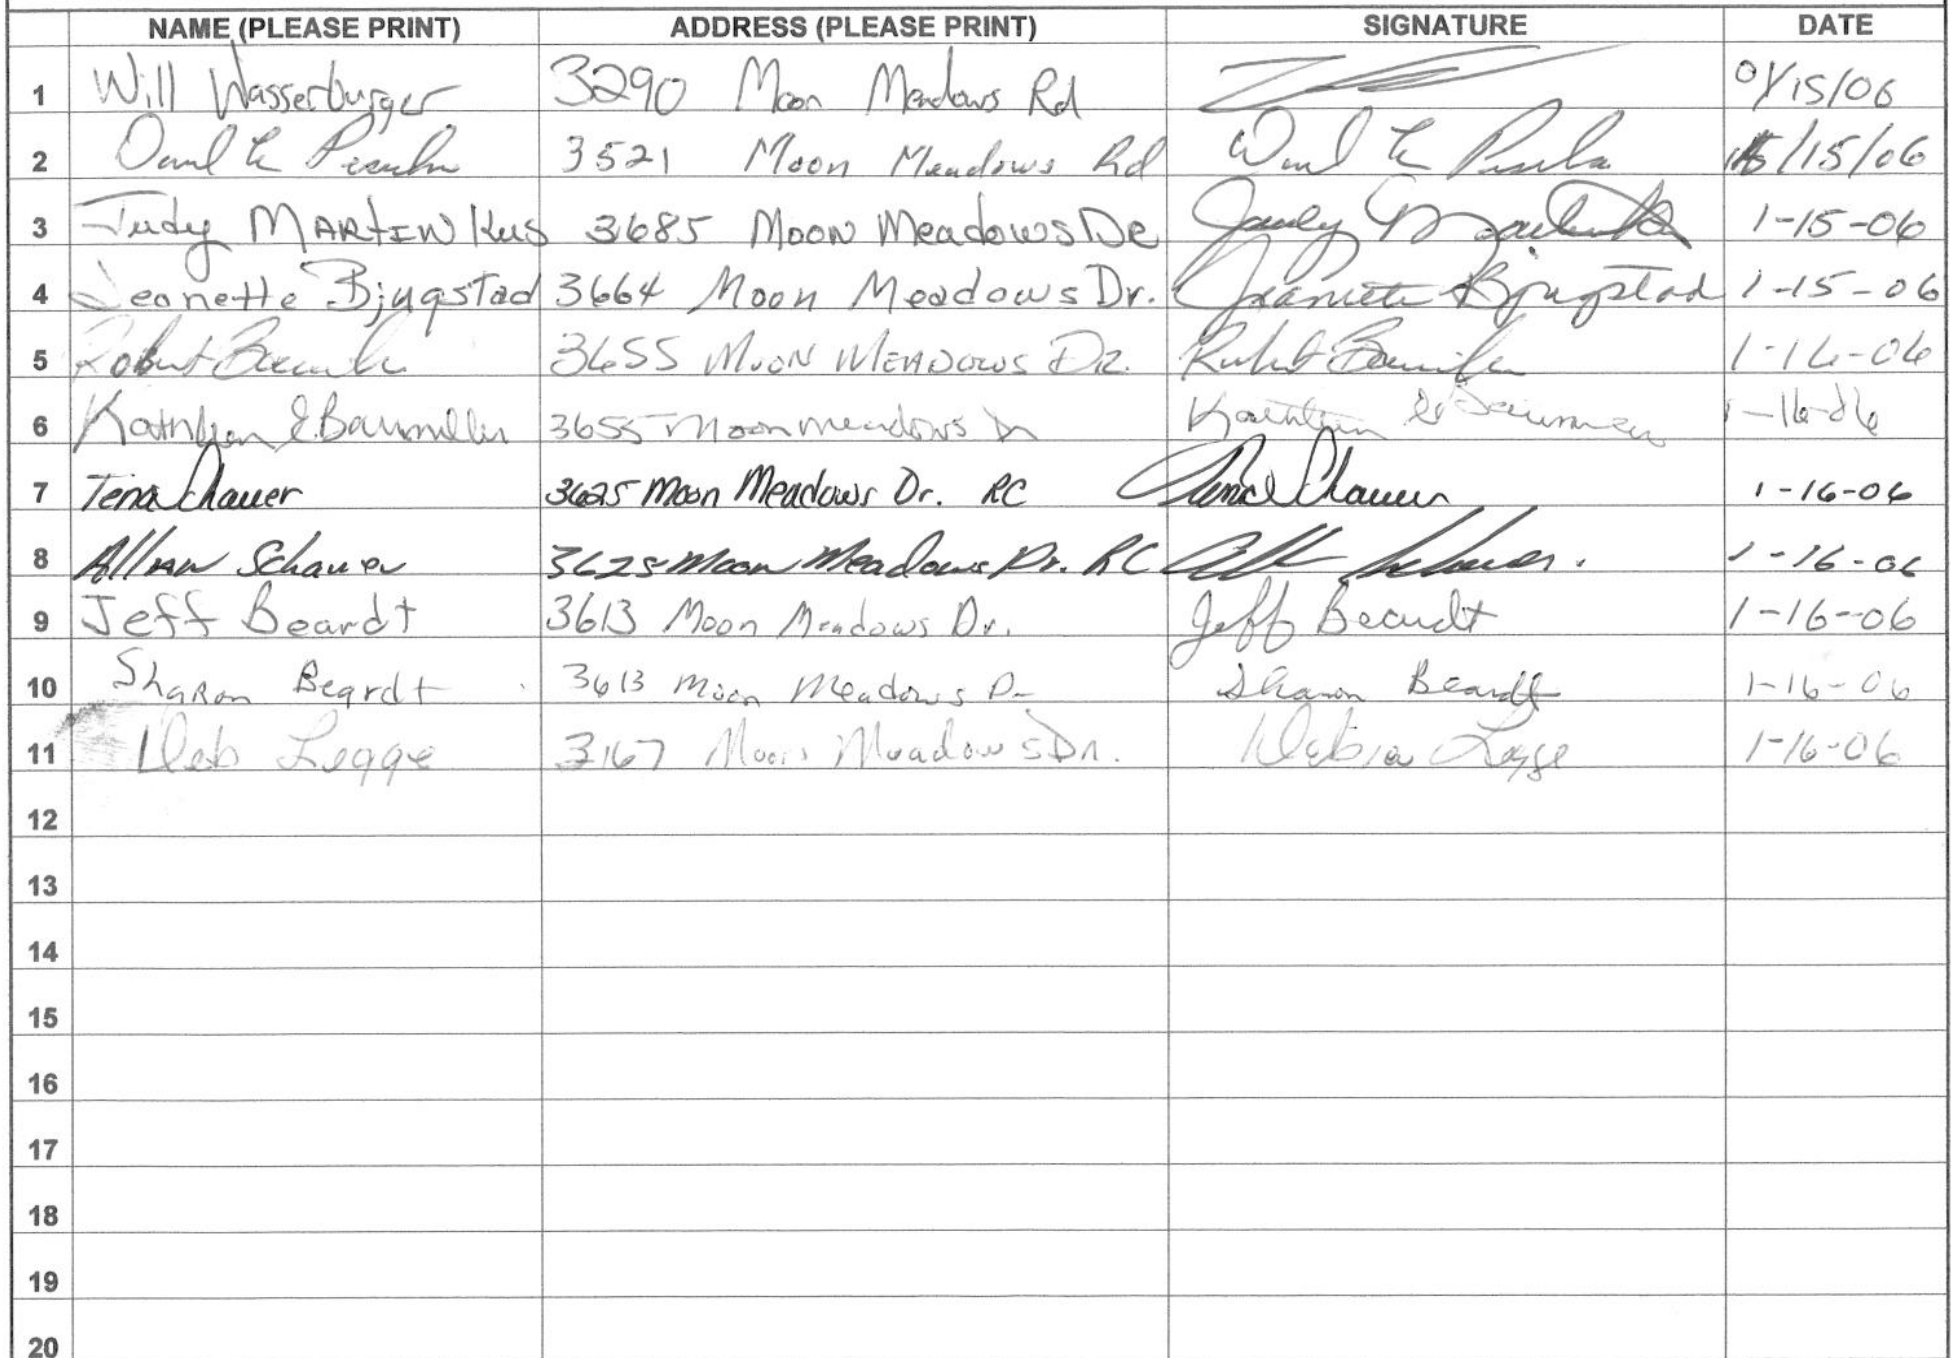 NAME (PLEASE PRINT) ADDRESS (PLEASE PRINT) SIGNATURE DATE
1 Will Wasserburger 3290 Moon Meadows Rd 01/15/06
2 3521 Moon Meadows Rd /15/06
3 Judy MARTINKus 3685 Moon Meadows De Judy 1-15-06
4 Jeanette Bjugstad 3664 Moon Meadows Dr. Jeanette Bjugstad 1-15-06
5 Robert 3655 MOON MEADOWS DR. Robert 1-16-06
6 Kathleen E. Baumiller 3655 Moon meadows Dr Kathleen E 1-16-06
7 Tena Schauer 3625 Moon Meadows Dr. RC Tena Schauer 1-16-06
8 Allan Schauer 3625 Moon Meadows Dr. RC 1-16-06
9 Jeff Beardt 3613 Moon Meadows Dr. Jeff Beardt 1-16-06
10 Sharon Beardt 3613 Moon Meadows Dr Sharon Beardt 1-16-06
11 Deb Legge 3167 Moon Meadows Dr. Debra Legge 1-16-06
12
13
14
15
16
17
18
19
20